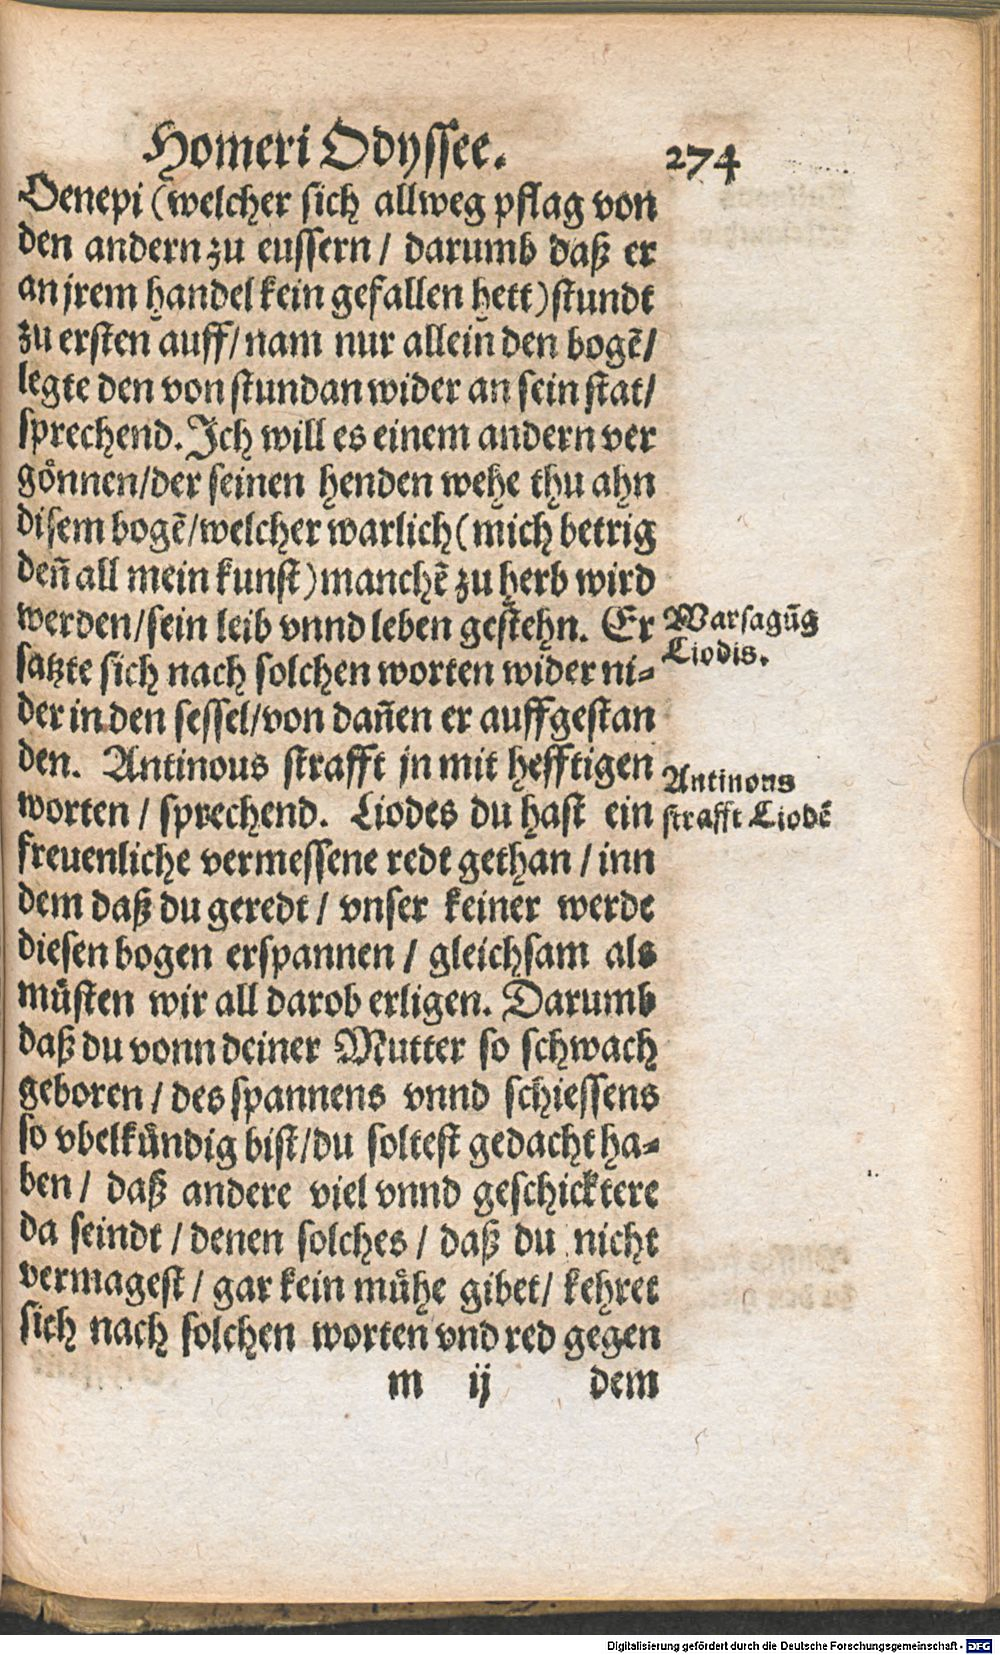 Homeri Odyssee. 274
Oenepi (welcher sich allweg pflag von
den andern zu eussern / darumb daß er
an jrem handel kein gefallen hett) stundt
zu ersten auff / nam nur allein den bogẽ /
legte den von stundan wider an sein stat /
sprechend. Ich will es einem andern ver
goͤnnen / der seinen henden wehe thu ahn
disem bogẽ / welcher warlich (mich betrig
deñ all mein kunst) manchẽ zu herb wird
werden / sein leib vnnd leben gestehn. Er
satzte sich nach solchen worten wider ni-
der in den sessel / von dañen er auffgestan
den. Antinous strafft jn mit hefftigen
worten / sprechend. Liodes du hast ein
freuenliche vermessene redt gethan / inn
dem daß du geredt / vnser keiner werde
diesen bogen erspannen / gleichsam als
muͤsten wir all darob erligen. Darumb
daß du vonn deiner Mutter so schwach
geboren / des spannens vnnd schiessens
so vbelkuͤndig bist / du soltest gedacht ha-
ben / daß andere viel vnnd geschicktere
da seindt / denen solches / daß du nicht
vermagest / gar kein muͤhe gibet / kehret
sich nach solchen worten vnd red gegen
m ij dem
Warsagũg
Liodis.
Antinous
strafft Liodẽ
Digitalisierung gefördert durch die Deutsche Forschungsgemeinschaft - DFG